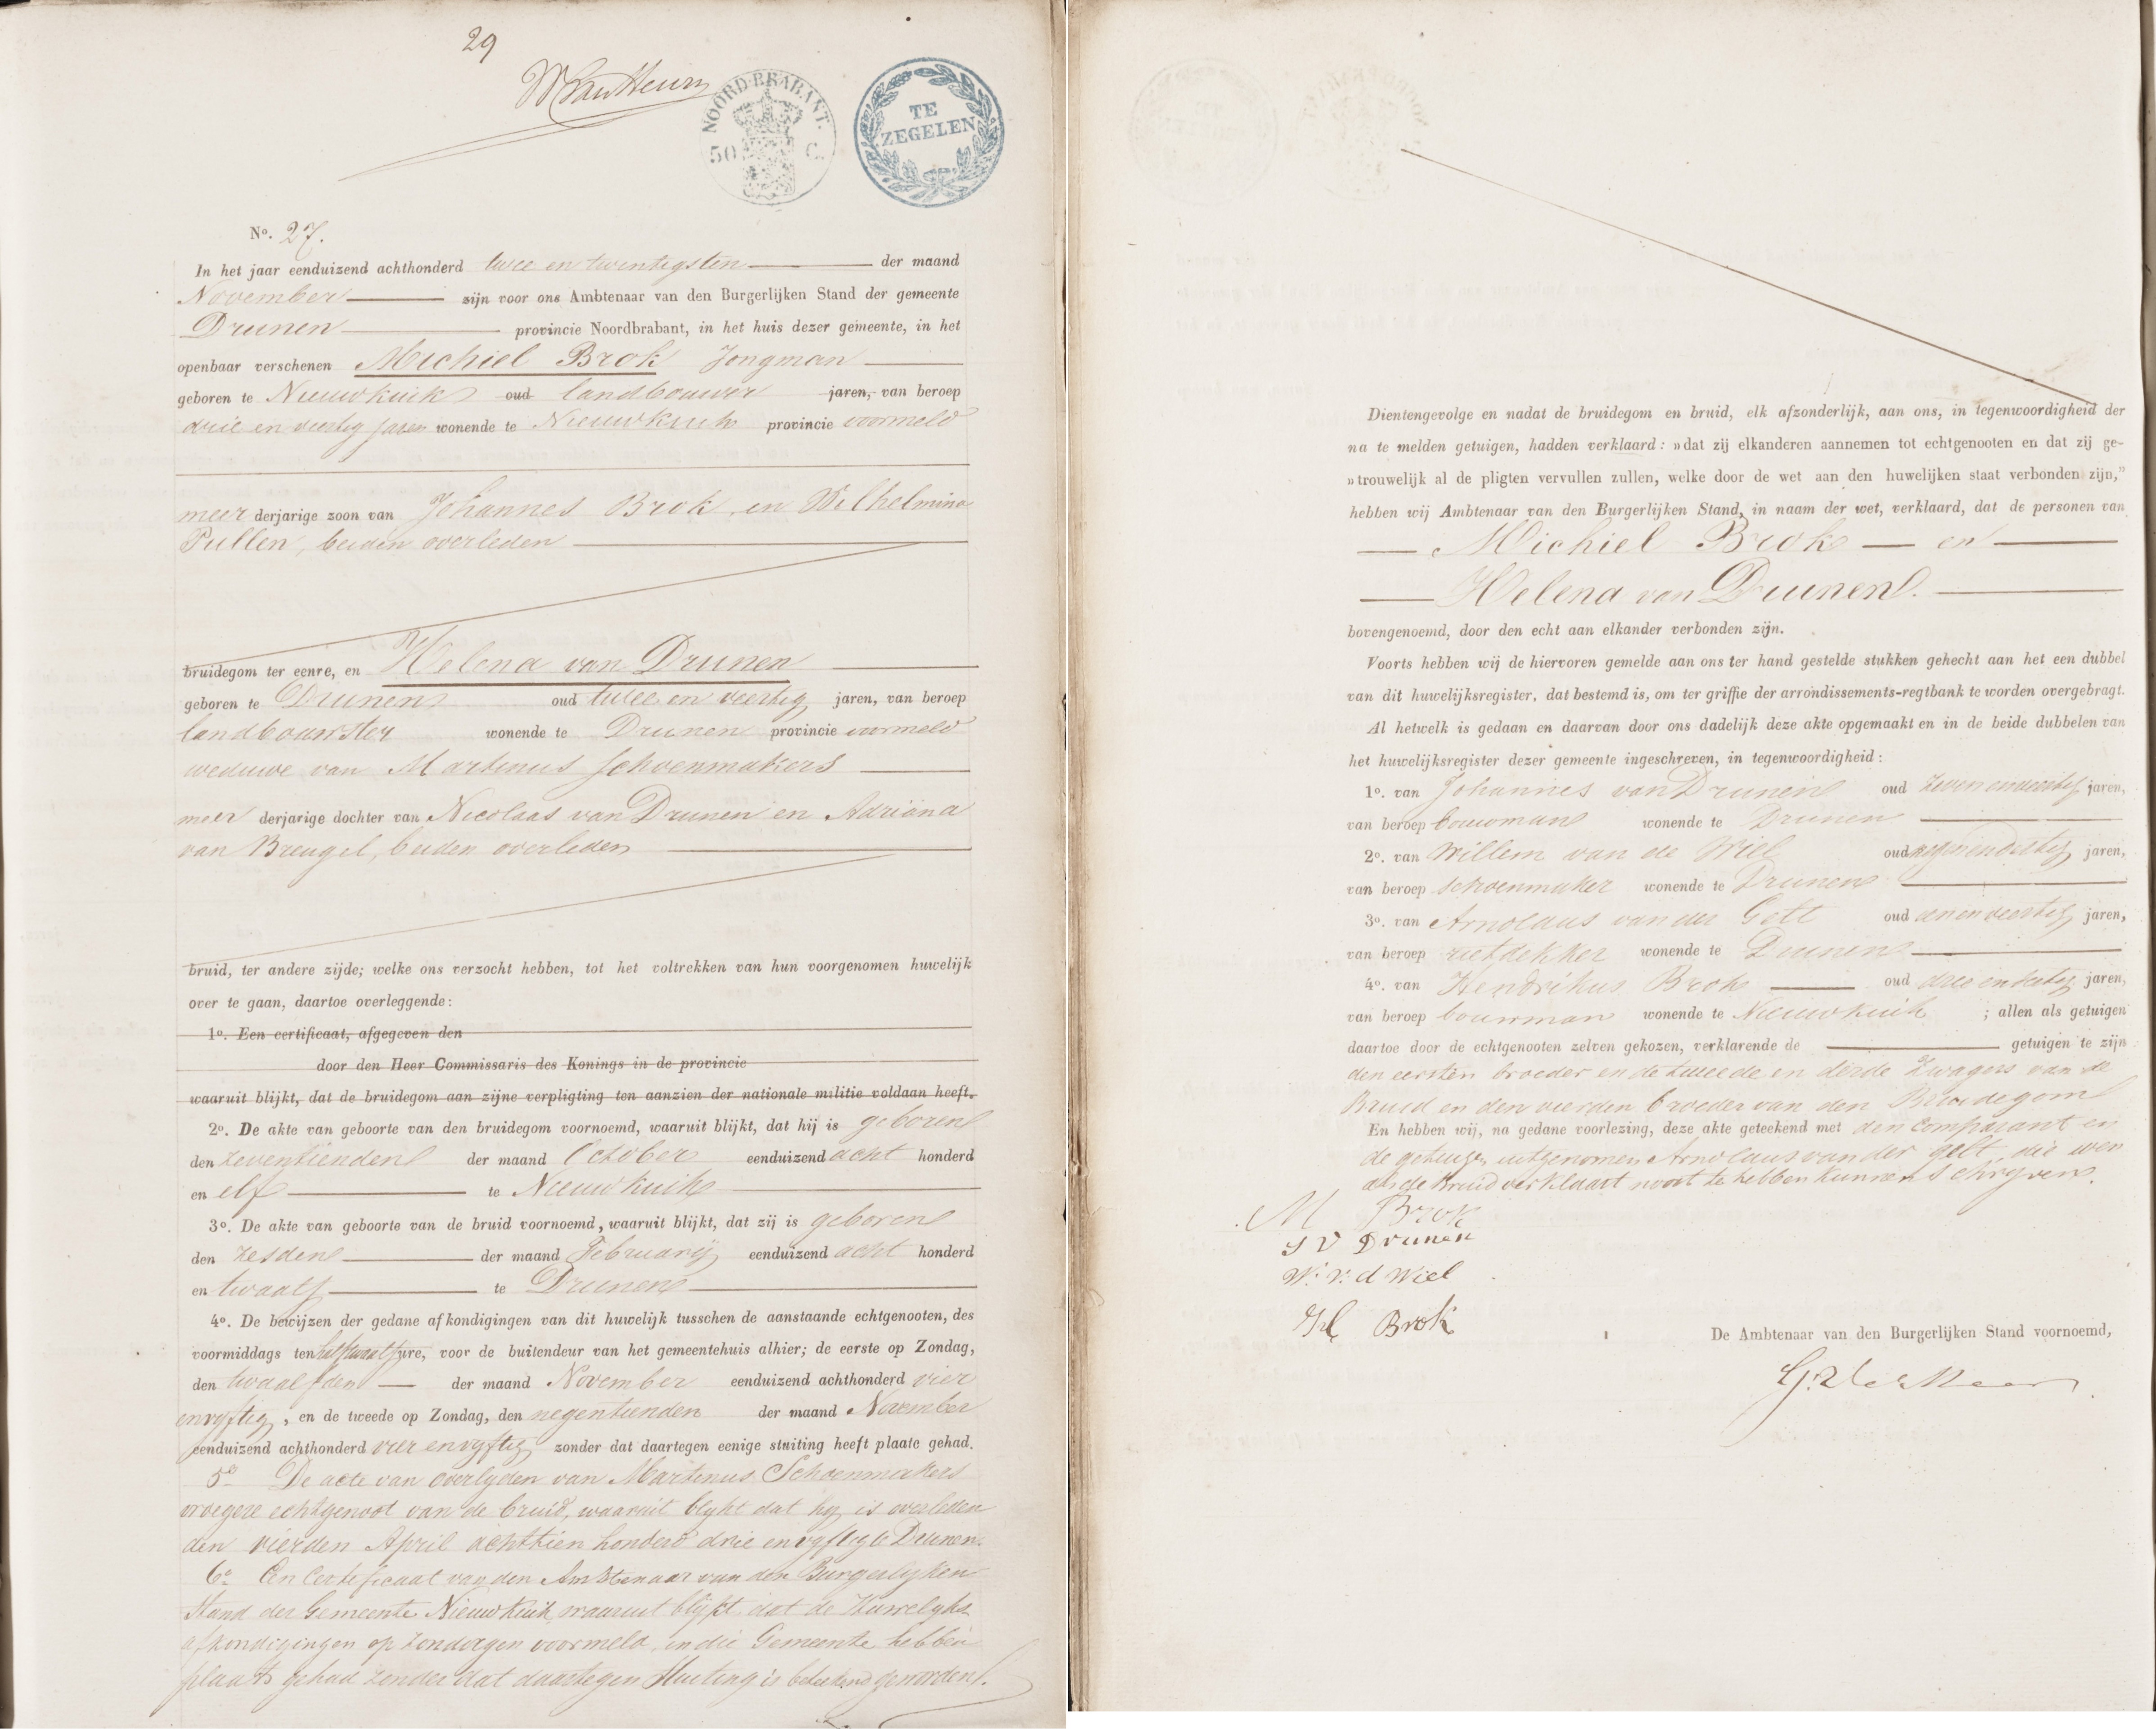 29
W van Heurn
NOORD-BRABANT.
50 C.
TE
ZEGELEN
No. 27.
In het jaar eenduizend achthonderd twee en twintigsten der maand
November zijn voor ons Ambtenaar van den Burgerlijken Stand der gemeente
Drunen provincie Noordbrabant, in het huis dezer gemeente, in het
openbaar verschenen Michiel Brok Jongman
geboren te Nieuwkuik oud landbouwer jaren, van beroep
drie en veertig jaren wonende te Nieuwkuik provincie voormeld
meer derjarige zoon van Johannes Brok en Wilhelmina
Pullen, beiden overleden
bruidegom ter eenre, en Helena van Drunen
geboren te Drunen oud twee en veertig jaren, van beroep
landbouwster wonende te Drunen provincie voormeld
weduwe van Martinus Schoenmakers
meer derjarige dochter van Nicolaas van Drunen en Adriana
van Breugel, beiden overleden
bruid, ter andere zijde; welke ons verzocht hebben, tot het voltrekken van hun voorgenomen huwelijk
over te gaan, daartoe overleggende:
1o. Een certificaat, afgegeven den
door den Heer Commissaris des Konings in de provincie
waaruit blijkt, dat de bruidegom aan zijne verpligting ten aanzien der nationale militie voldaan heeft.
2o. De akte van geboorte van den bruidegom voornoemd, waaruit blijkt, dat hij is geboren
den zeventienden der maand October eenduizend acht honderd
en elf te Nieuwkuik
3o. De akte van geboorte van de bruid voornoemd, waaruit blijkt, dat zij is geboren
den zesden der maand Februarij eenduizend acht honderd
en twaalf te Drunen
4o. De bewijzen der gedane afkondigingen van dit huwelijk tusschen de aanstaande echtgenooten, des
voormiddags ten half twaalf ure, voor de buitendeur van het gemeentehuis alhier; de eerste op Zondag,
den twaalfden der maand November eenduizend achthonderd vier
en vyftig, en de tweede op Zondag, den negentienden der maand November
eenduizend achthonderd vier en vyftig zonder dat daartegen eenige stuiting heeft plaats gehad.
5o De acte van overlyden van Martinus Schoenmakers
vroegere echtgenoot van de bruid, waaruit blykt dat hy is overleden
den vierden April achttien honderd drie en vyftig te Drunen.
6o Een Certificaat van den Ambtenaar van den Burgerlyken
Stand der Gemeente Nieuwkuik waaruit blykt dat de Huwelyks
afkondigingen op zondagen voormeld, in die Gemeente hebben
plaats gehad zonder dat daartegen Stuiting is beteekend geworden.
Dientengevolge en nadat de bruidegom en bruid, elk afzonderlijk, aan ons, in tegenwoordigheid der
na te melden getuigen, hadden verklaard: »dat zij elkanderen aannemen tot echtgenooten en dat zij ge-
»trouwelijk al de pligten vervullen zullen, welke door de wet aan den huwelijken staat verbonden zijn,”
hebben wij Ambtenaar van den Burgerlijken Stand, in naam der wet, verklaard, dat de personen van
Michiel Brok en
Helena van Drunen.
bovengenoemd, door den echt aan elkander verbonden zijn.
Voorts hebben wij de hiervoren gemelde aan ons ter hand gestelde stukken gehecht aan het een dubbel
van dit huwelijksregister, dat bestemd is, om ter griffie der arrondissements-regtbank te worden overgebragt.
Al hetwelk is gedaan en daarvan door ons dadelijk deze akte opgemaakt en in de beide dubbelen van
het huwelijksregister dezer gemeente ingeschreven, in tegenwoordigheid:
1o. van Johannes van Drunen oud jaren,
van beroep bouwman wonende te Drunen
2o. van Willem van de Wiel oud negenendertig jaren,
van beroep schoenmaker wonende te Drunen
3o. van Arnoldus van der Gelt oud eenenveertig jaren,
van beroep rietdekker wonende te Drunen
4o. van Hendrikus Brok oud jaren,
van beroep bouwman wonende te Nieuwkuik ; allen als getuigen
daartoe door de echtgenooten zelven gekozen, verklarende de getuigen te zijn
den eersten broeder en de tweede en derde zwagers van de
Bruid en den vierden broeder van den Bruidegom
En hebben wij, na gedane voorlezing, deze akte geteekend met den comparant en
de getuigen uitgenomen Arnoldus van der Gelt die even
als de Bruid verklaart nooit te hebben kunnen schryven.
M Brok
J V Drunen
W. v. d Wiel
H Brok
De Ambtenaar van den Burgerlijken Stand voornoemd,